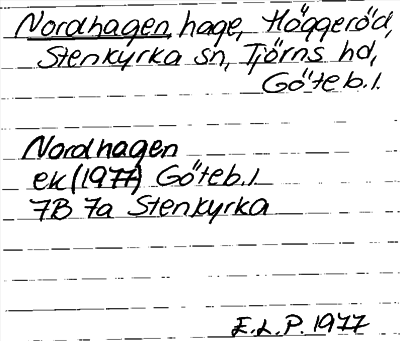 Nordhagen, hage, Höggeröd,
Stenkyrka sn, Tjörns hd,
Göteb. l.
Nordhagen
ek (1977) Göteb. l.
7B 7a Stenkyrka
E. L. P. 1977